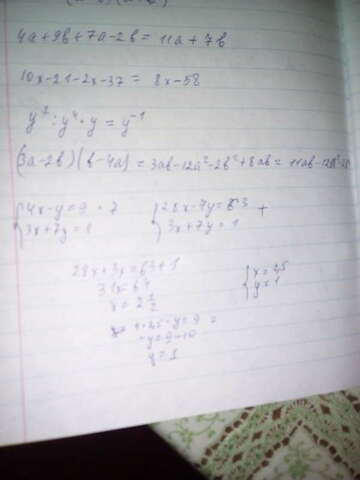 4a+9b+7a-2b=11a+7b
10x-21-2x-37=8x-58
y²:y⁴·y=y⁻¹
(3a-2b)(b-4a)=3ab-12a²-2b²+8ab=11ab-12a²-2
4x-y=9 · 7
3x+7y=1
28x-7y=63 +
3x+7y=1
28x+3x=63+1
31x=64
x=2½
x=2,5
y=1
-y=9-10
y=1